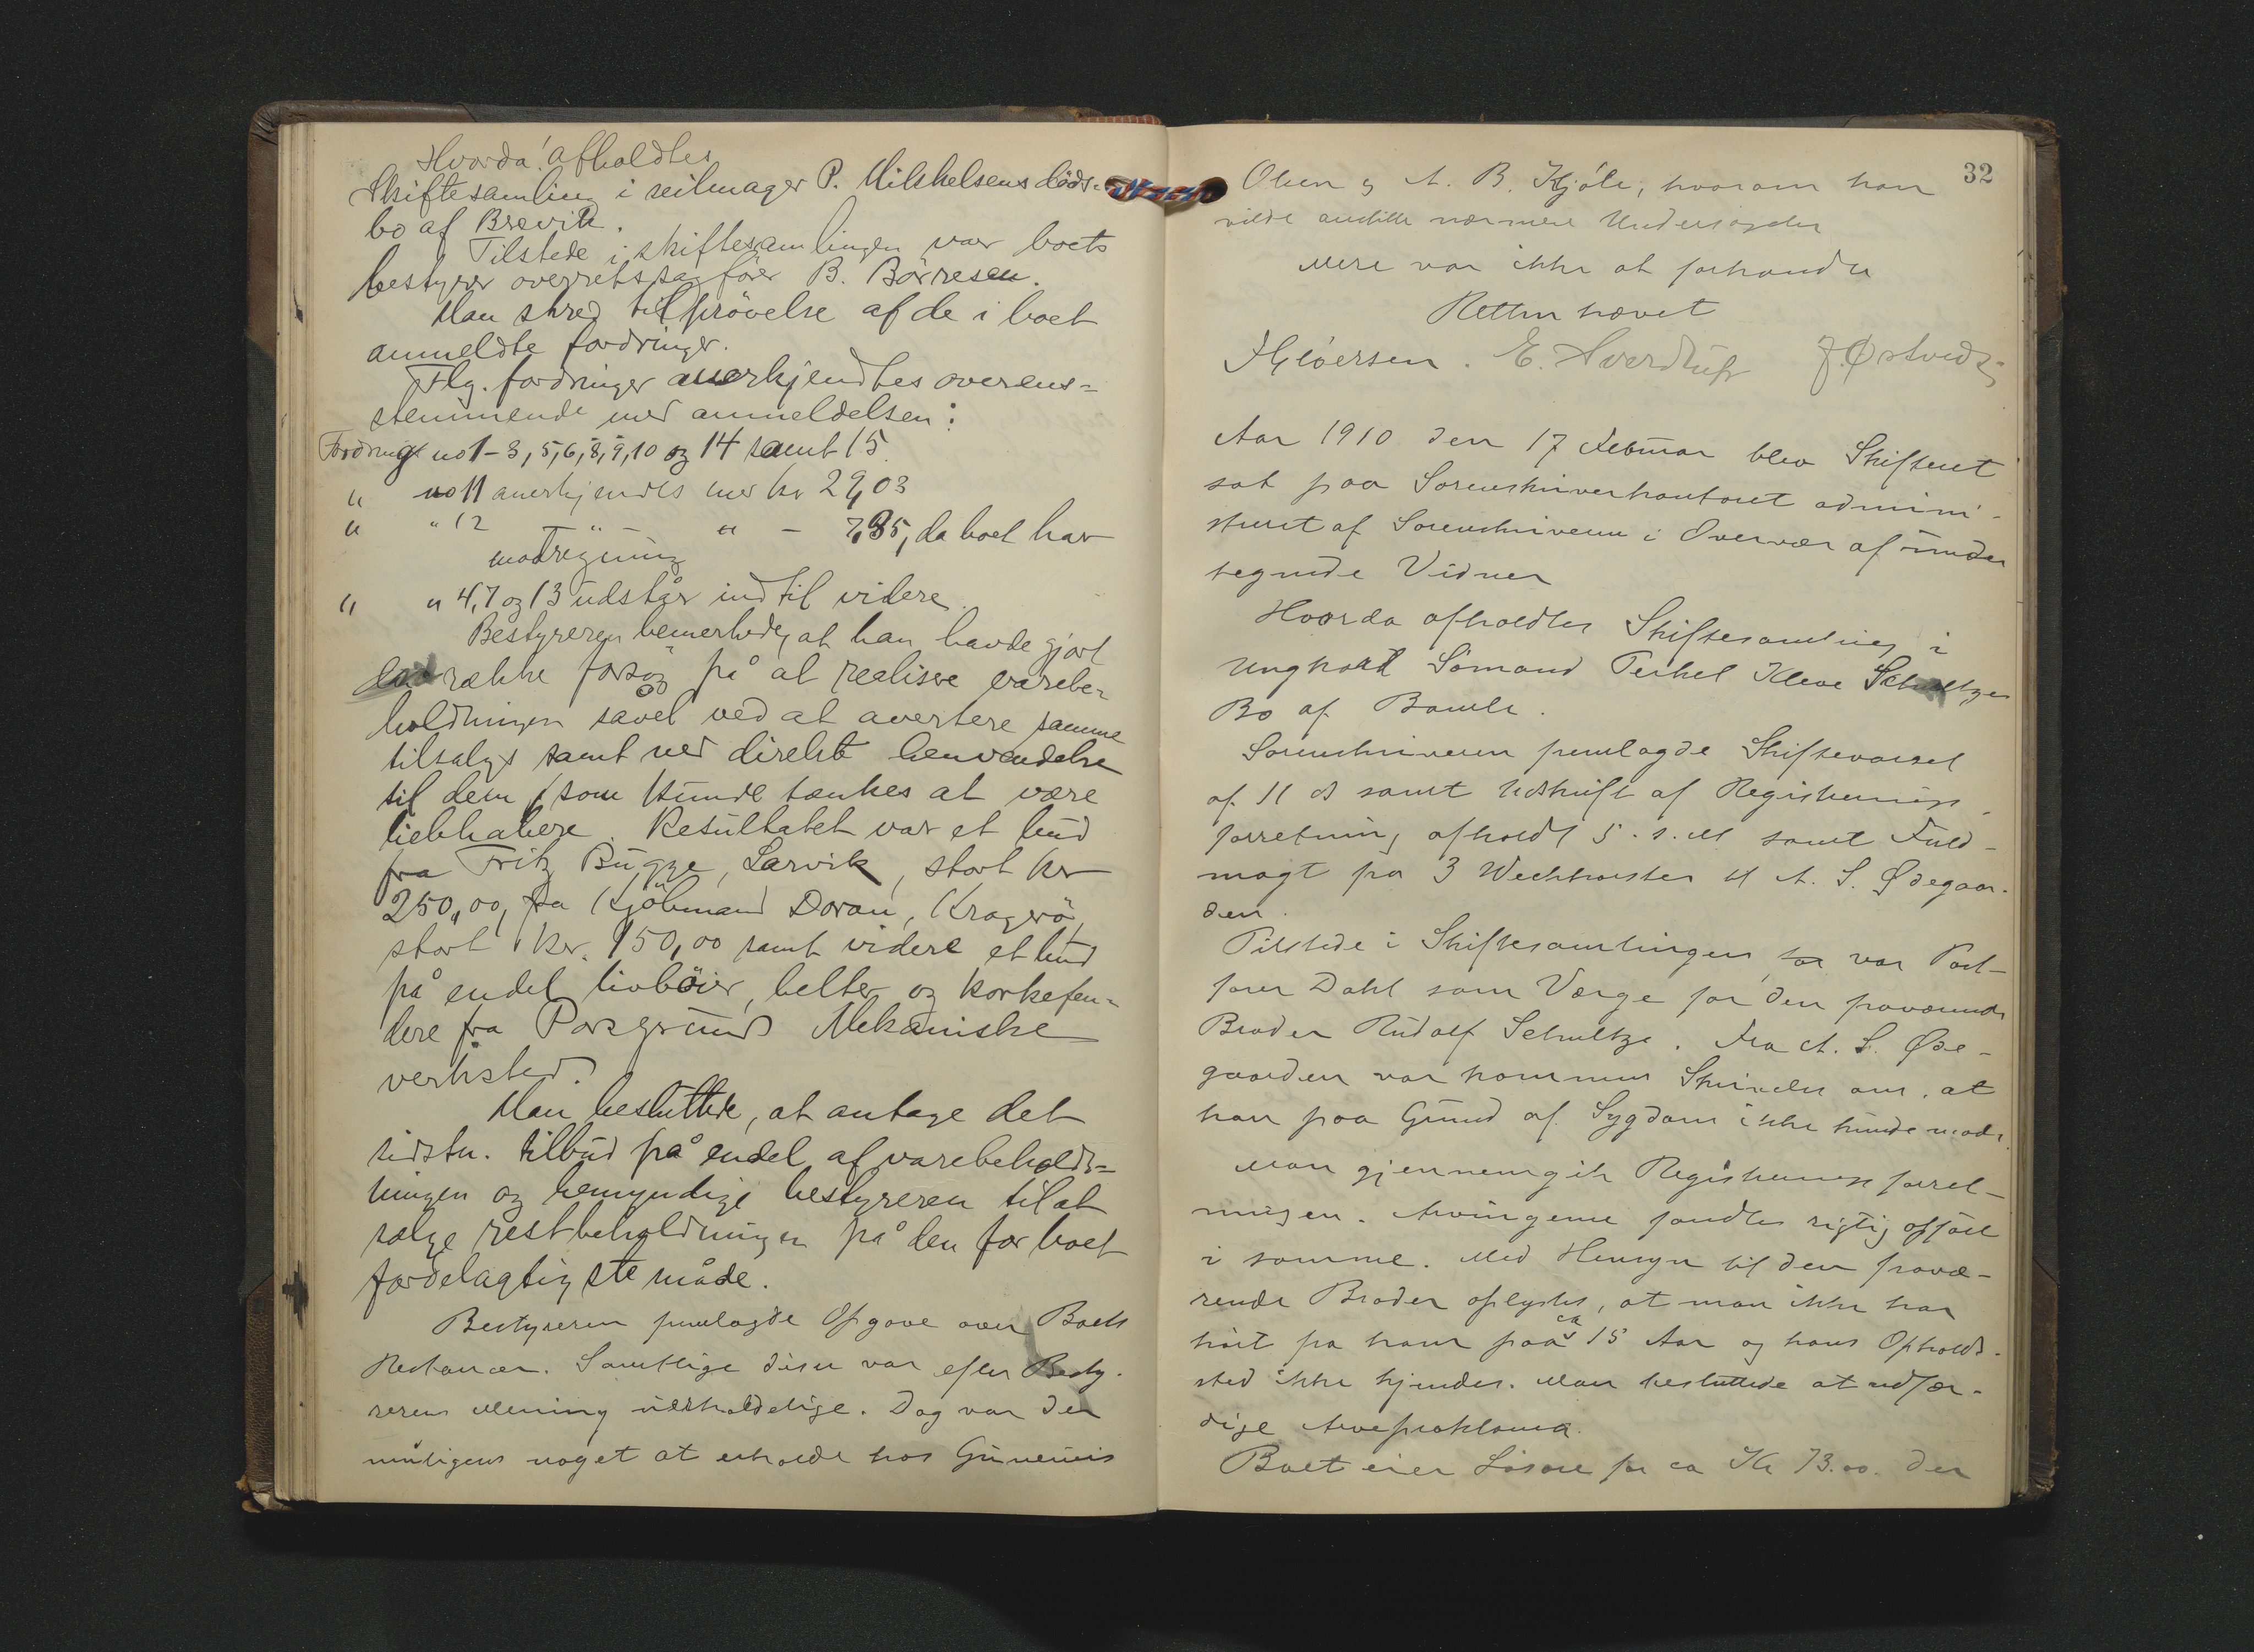 Hvorda afholdtes
Skiftesamling i seilmager P. Mikkelsens döds-
bo af Brevik.
Tilstede i skiftesamlingen var boets
bestyrer overretssagförer B. Börresen.
Man skred til prövelse af de i boet
anmeldte fordringer.
Flg. fordringer anerkjendtes overens-
stemmende med anmeldelsen:
Fordring no 1-3, 5, 6, 8, 9, 10 og 14 samt 15.
" no 11 anerkjendes med kr 29,03
" " 12 — " — " — 7,35, da boet har
modregning
" " 4, 7 og 13 udstår indtil videre.
Bestyreren bemerkede, at han havde gjort
en række forsög på at realisere varebe-
holdningen såvel ved at avertere samme
tilsalgs samt ved direkte henvendelse
til dem, som kunde tænkes at være
liebhabere. Resultatet var et bud
fra Fritz Bugge, Larvik, stort kr
250,00, fra Kjöbmand Doran, Kragerö,
stort kr. 150,00 samt videre et bud
på endel livböier, belter og korkefen-
dere fra Porsgrunds Mekaniske
verksted.
Man besluttede, at antage det
sidstn. tilbud på endel af varebehold-
ningen og bemyndige bestyreren til at
sælge restbeholdningen på den for boet
fordelagtigste måde.
Bestyreren fremlagde Opgave over Boets
Restancer. Samtlige disse var efter Besty-
rerens Mening uerholdelige. Dog var der
muligens noget at erholde hos
32
Olsen og A. B. Kjöle, hvorom han
vilde anstille nærmere Undersøgelser
Mere var ikke at forhandle
Retten hævet
E. Sverdrup J. Østvedt
Aar 1910 den 17 Februar blev Skifteret
sat paa Sorenskriverkontoret admini-
streret af Sorenskriveren i Overvær af under
tegnede Vidner
Hvorda afholdtes Skiftesamling i
Ungkarl Sömand Terkel Kleve Schultzes
Bo af Bamle.
Sorenskriveren fremlagde Skiftevarsel
af 11 ds samt Udskrift af Registrerings-
forretning afholdt 5. s. M samt Fuld-
magt fra 3 til A. S. Ødegaar-
den.
Tilstede i Skiftesamlingen var
Dahl som Værge for den fraværende
Broder Rudolf Schultze. Fra A. S. Øde-
gaarden var kommen Skrivelse om, at
han paa Grund af Sygdom ikke kunde møde.
Man gjennemgik Registreringsforret-
ningen. Arvingerne fandtes rigtig opfört
i samme. Med Hensyn til den fravæ-
rende Broder oplystes, at man ikke har
hört fra ham paa ca 15 Aar og hans Opholds-
sted ikke kjendes. Man besluttede at udfær-
dige Arveproklama.
Boet eier Lösöre for ca Kr 73.00. Der